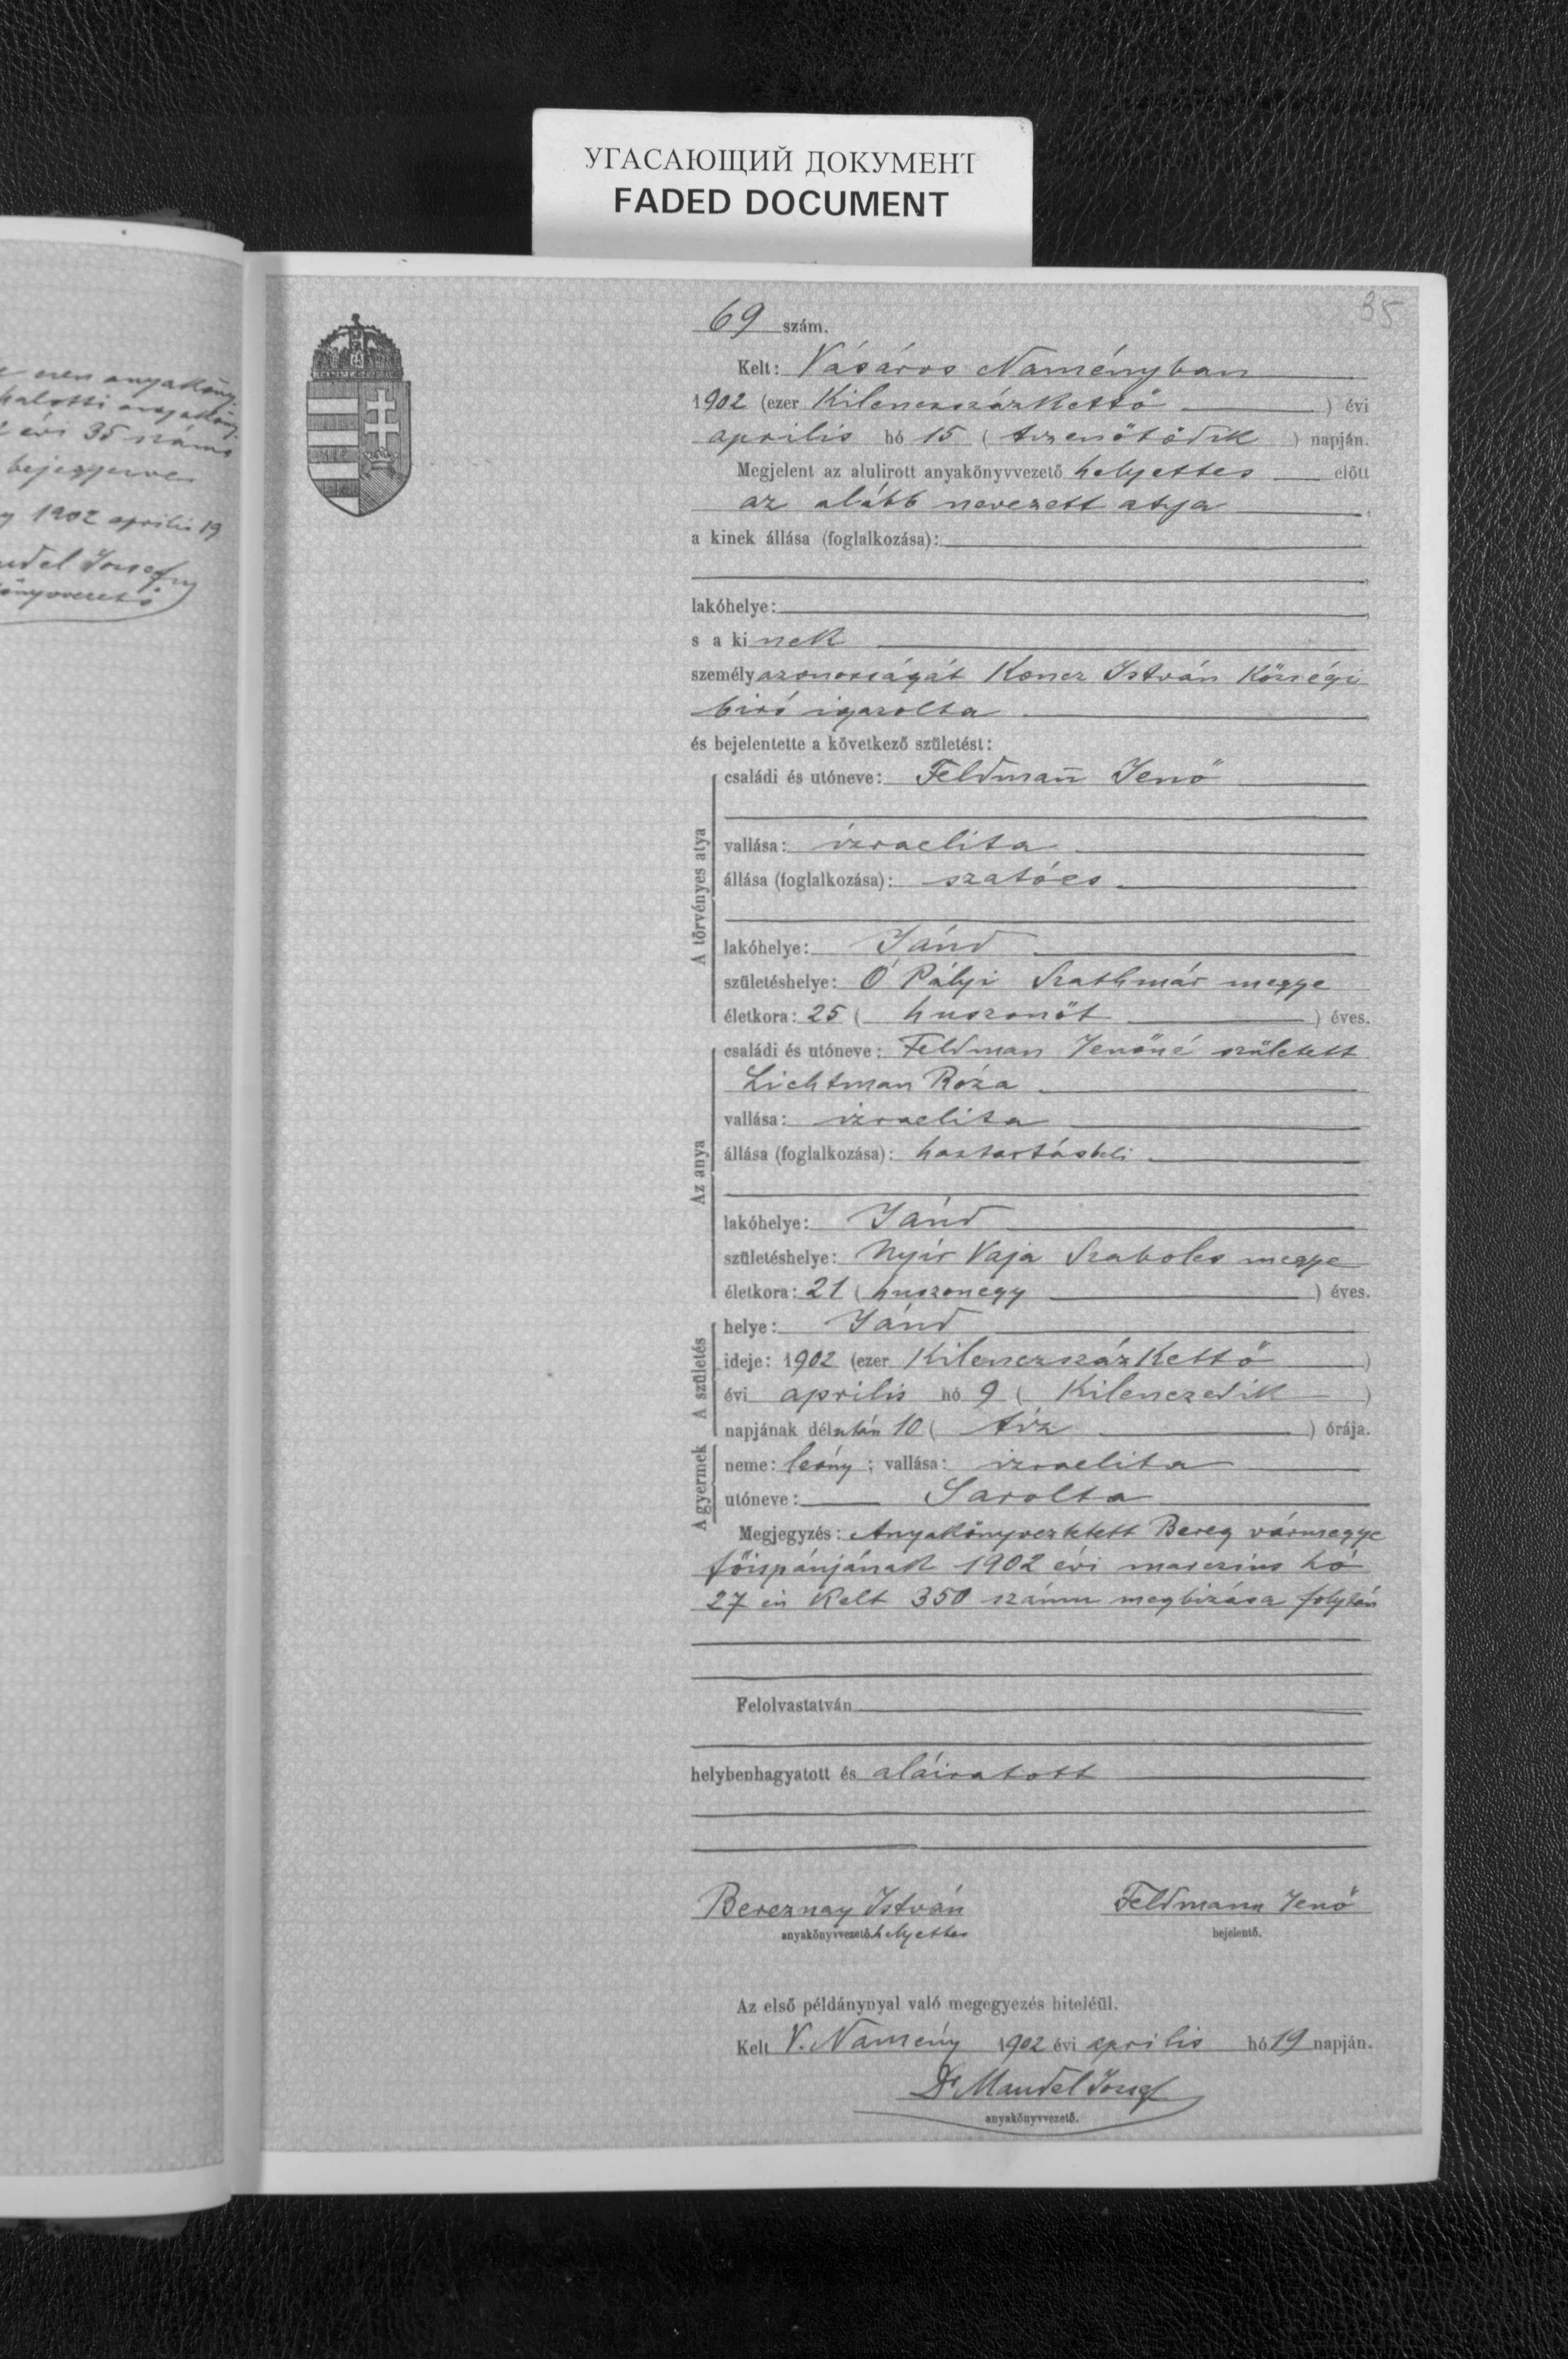 УГАСАЮЩИЙ ДОКУМЕНТ
FADED DOCUMENT
35
69 szám.
Kelt: Vásáros Naményban
1902 (ezer Kilenczszázkettő) évi
aprilis hó 15 (tizenötödik) napján.
Megjelent az alulirott anyakönyvvezető helyettes előtt
az alább nevezett atyja,
a kinek állása (foglalkozása):
lakóhelye:
s a kinek
személyazonosságát Koncz István községi
biró igazolta
és bejelentette a következő születést:
A törvényes atya
családi és utóneve: Feldman̄ Jenő
vallása: izraelita
állása (foglalkozása): szatócs
lakóhelye: Jánd
születéshelye: Ó Pályi Szathmár megye
életkora: 25 (huszonöt) éves.
Az anya
családi és utóneve: Feldman Jenőné született
Lichtman Róza
vallása: izraelita
állása (foglalkozása): haztartásbeli
lakóhelye: Jánd
születéshelye: Nyír Vaja Szabolcs megye
életkora: 21 (huszonegy) éves.
A születés
helye: Jánd
ideje: 1902 (ezer Kilenczszázkettő)
évi aprilis hó 9 (Kilenczedik)
napjának délután 10 (tiz) órája.
A gyermek
neme: leány; vallása: izraelita
utóneve: Sarolta
Megjegyzés: Anyakönyveztetett Bereg vármegye
főispánjának 1902 évi marczius hó
27 én kelt 350 számu megbizása folytán
Felolvastatván
helybenhagyatott és aláiratott
Bereznay István
anyakönyvvezető helyettes
Feldmann Jenő
bejelentő.
Az első példánynyal való megegyezés hiteléül.
Kelt V. Namény 1902 évi aprilis hó 19 napján.
Dr Mandel József
anyakönyvvezető.
1902 aprilis 19